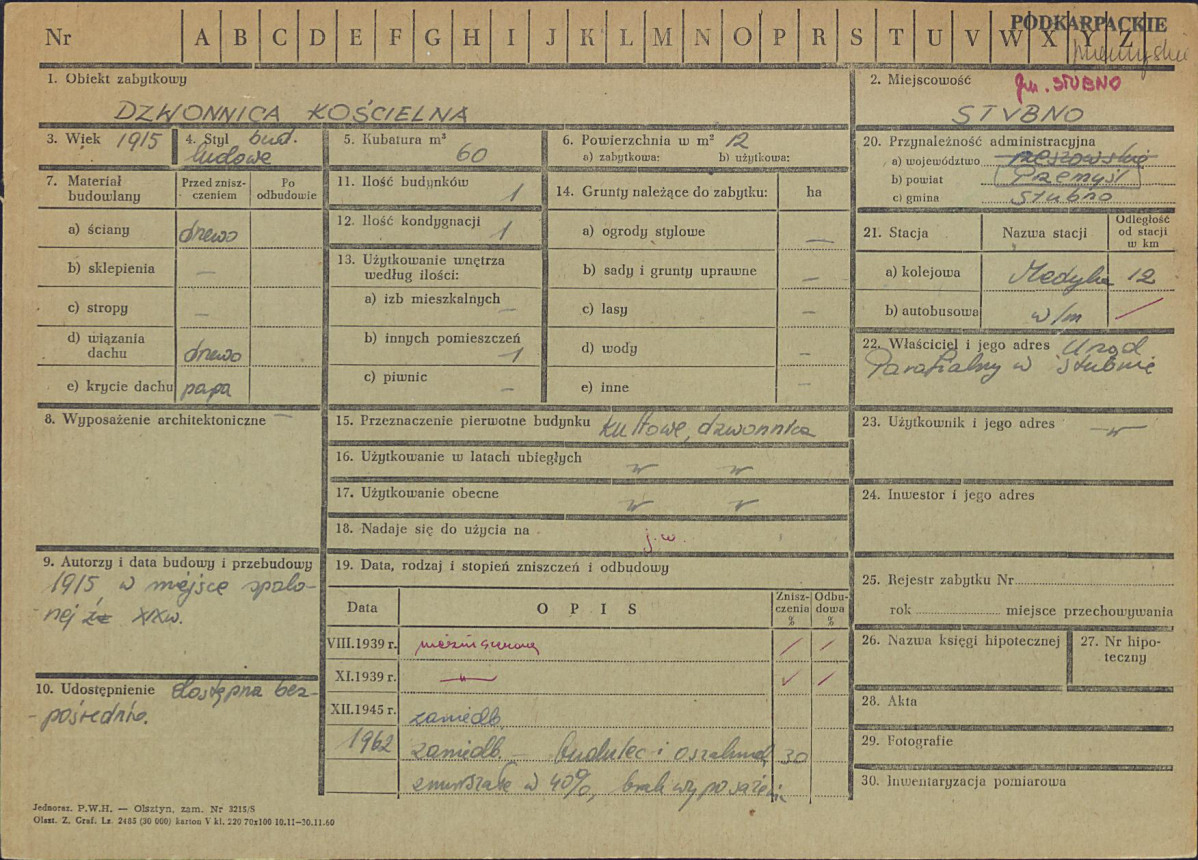 Nr A B C D E F G H I J K L M N O P R S T U V W X Y Z
PODKARPACKIE
przemyskie
1. Obiekt zabytkowy
DZWONNICA KOŚCIELNA
2. Miejscowość gm. STUBNO
STUBNO
3. Wiek 1915
4. Styl bud.
ludowe
5. Kubatura m³
60
6. Powierzchnia w m² 12
a) zabytkowa: b) użytkowa:
20. Przynależność administracyjna
a) województwo rzeszowskie
b) powiat Przemyśl
c) gmina Stubno
7. Materiał budowlany
Przed zniszczeniem
Po odbudowie
a) ściany drewo
b) sklepienia —
c) stropy —
d) wiązania dachu drewo
e) krycie dachu papa
11. Ilość budynków 1
12. Ilość kondygnacji 1
13. Użytkowanie wnętrza
według ilości:
a) izb mieszkalnych —
b) innych pomieszczeń 1
c) piwnic —
14. Grunty należące do zabytku: ha
a) ogrody stylowe —
b) sady i grunty uprawne —
c) lasy —
d) wody —
e) inne —
21. Stacja
Nazwa stacji
Odległość
od stacji
w km
a) kolejowa Medyka 12
b) autobusowa w/m /
22. Właściciel i jego adres Urząd
Parafialny w Stubnie
8. Wyposażenie architektoniczne —
15. Przeznaczenie pierwotne budynku kultowe, dzwonnica
16. Użytkowanie w latach ubiegłych
17. Użytkowanie obecne
18. Nadaje się do użycia na j.w.
23. Użytkownik i jego adres
24. Inwestor i jego adres
9. Autorzy i data budowy i przebudowy
1915, w miejsce spalo-
nej z XIXw.
10. Udostępnienie dostępna bez-
-pośrednio.
19. Data, rodzaj i stopień zniszczeń i odbudowy
Data
OPIS
Zniszczenia %
Odbudowa %
VIII.1939 r. niezniszczona / /
XI.1939 r. —"— / /
XII.1945 r. zaniedb.
1962 zaniedb. — budulec i oszalow. 30
zmurszałe w 40%, brak wyposażenia
25. Rejestr zabytku Nr
rok miejsce przechowywania
26. Nazwa księgi hipotecznej
27. Nr hipo-
teczny
28. Akta
29. Fotografie
30. Inwentaryzacja pomiarowa
Jednoraz. P.W.H. — Olsztyn, zam. Nr 3215/S
Olszt. Z. Graf. Lz. 2485 (30 000) karton V kl. 220 70x100 10.11—30.11.60